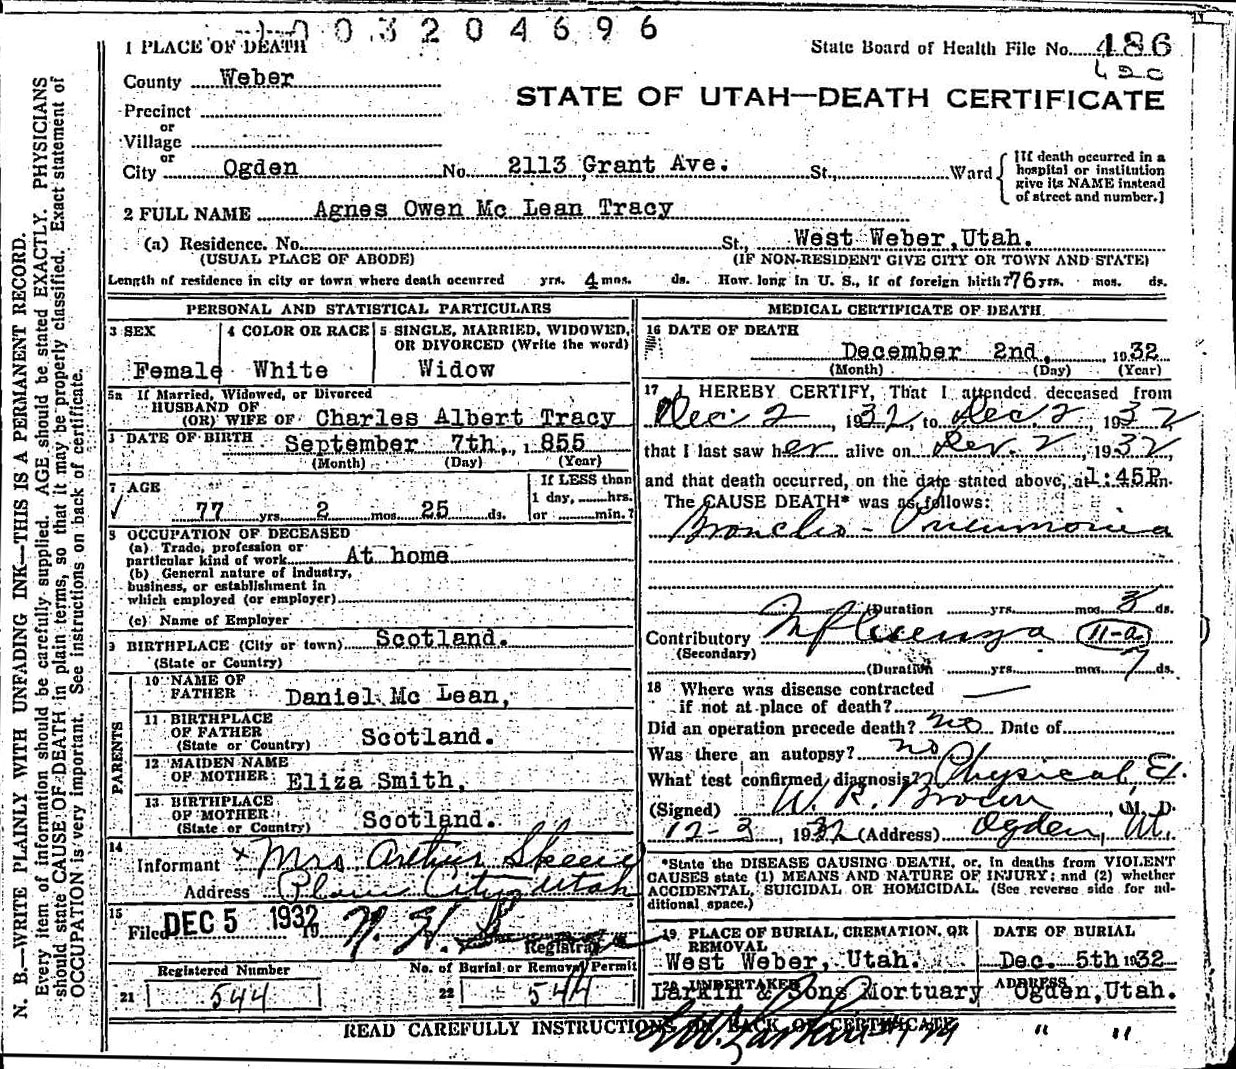 003204696
1 PLACE OF DEATH
State Board of Health File No. 486
County Weber
STATE OF UTAH—DEATH CERTIFICATE
Precinct
or
Village
or
City Ogden No. 2113 Grant Ave. St., Ward
[If death occurred in a hospital or institution give its NAME instead of street and number.]
2 FULL NAME Agnes Owen Mc Lean Tracy
(a) Residence. No. St., West Weber, Utah.
(USUAL PLACE OF ABODE) (IF NON-RESIDENT GIVE CITY OR TOWN AND STATE)
Length of residence in city or town where death occurred yrs. 4 mos. ds. How long in U. S., if of foreign birth? 76 yrs. mos. ds.
PERSONAL AND STATISTICAL PARTICULARS
3 SEX 4 COLOR OR RACE 5 SINGLE, MARRIED, WIDOWED, OR DIVORCED (Write the word)
Female White Widow
5a If Married, Widowed, or Divorced
HUSBAND OF
(OR) WIFE OF Charles Albert Tracy
DATE OF BIRTH September 7th, 1855
(Month) (Day) (Year)
7 AGE If LESS than
1 day, hrs.
77 yrs. 2 mos. 25 ds. or min.?
8 OCCUPATION OF DECEASED
(a) Trade, profession or
particular kind of work At home
(b) General nature of industry,
business, or establishment in
which employed (or employer)
(c) Name of Employer
9 BIRTHPLACE (City or town) Scotland.
(State or Country)
PARENTS
10 NAME OF
FATHER Daniel Mc Lean,
11 BIRTHPLACE
OF FATHER Scotland.
(State or Country)
12 MAIDEN NAME
OF MOTHER Eliza Smith,
13 BIRTHPLACE
OF MOTHER Scotland.
(State or Country)
14
Informant x Mrs Arthur Skeen
Address Plain City Utah
15
Filed DEC 5 1932 19
Registrar
Registered Number No. of Burial or Removal Permit
21 544 22 544
MEDICAL CERTIFICATE OF DEATH
16 DATE OF DEATH
December 2nd, 1932
(Month) (Day) (Year)
17 I HEREBY CERTIFY, That I attended deceased from
Dec. 2, 1932, to Dec. 2, 1932
that I last saw her alive on Dec. 2, 1932,
and that death occurred, on the date stated above, at 1:45P.m.
The CAUSE DEATH* was as follows:
Broncho-Pneumonia
(Duration yrs. mos. 3 ds.
Contributory Influenza 11-a
(Secondary)
(Duration yrs. mos. 7 ds.
18 Where was disease contracted
if not at place of death?
Did an operation precede death? no Date of
Was there an autopsy? no
What test confirmed diagnosis? Physical Ex.
(Signed) W. R. Brown, M. D.
12-3, 1932 (Address) Ogden, Ut.
*State the DISEASE CAUSING DEATH, or, in deaths from VIOLENT
CAUSES state (1) MEANS AND NATURE OF INJURY; and (2) whether
ACCIDENTAL, SUICIDAL OR HOMICIDAL. (See reverse side for ad-
ditional space.)
19 PLACE OF BURIAL, CREMATION, OR REMOVAL DATE OF BURIAL
West Weber, Utah. Dec. 5th 1932
20 UNDERTAKER ADDRESS
Larkin & Sons Mortuary Ogden, Utah.
READ CAREFULLY INSTRUCTIONS ON BACK OF CERTIFICATE
" "
N. B.—WRITE PLAINLY WITH UNFADING INK—THIS IS A PERMANENT RECORD.
Every item of information should be carefully supplied. AGE should be stated EXACTLY. PHYSICIANS
should state CAUSE OF DEATH in plain terms, so that it may be properly classified. Exact statement of
OCCUPATION is very important. See instructions on back of certificate.